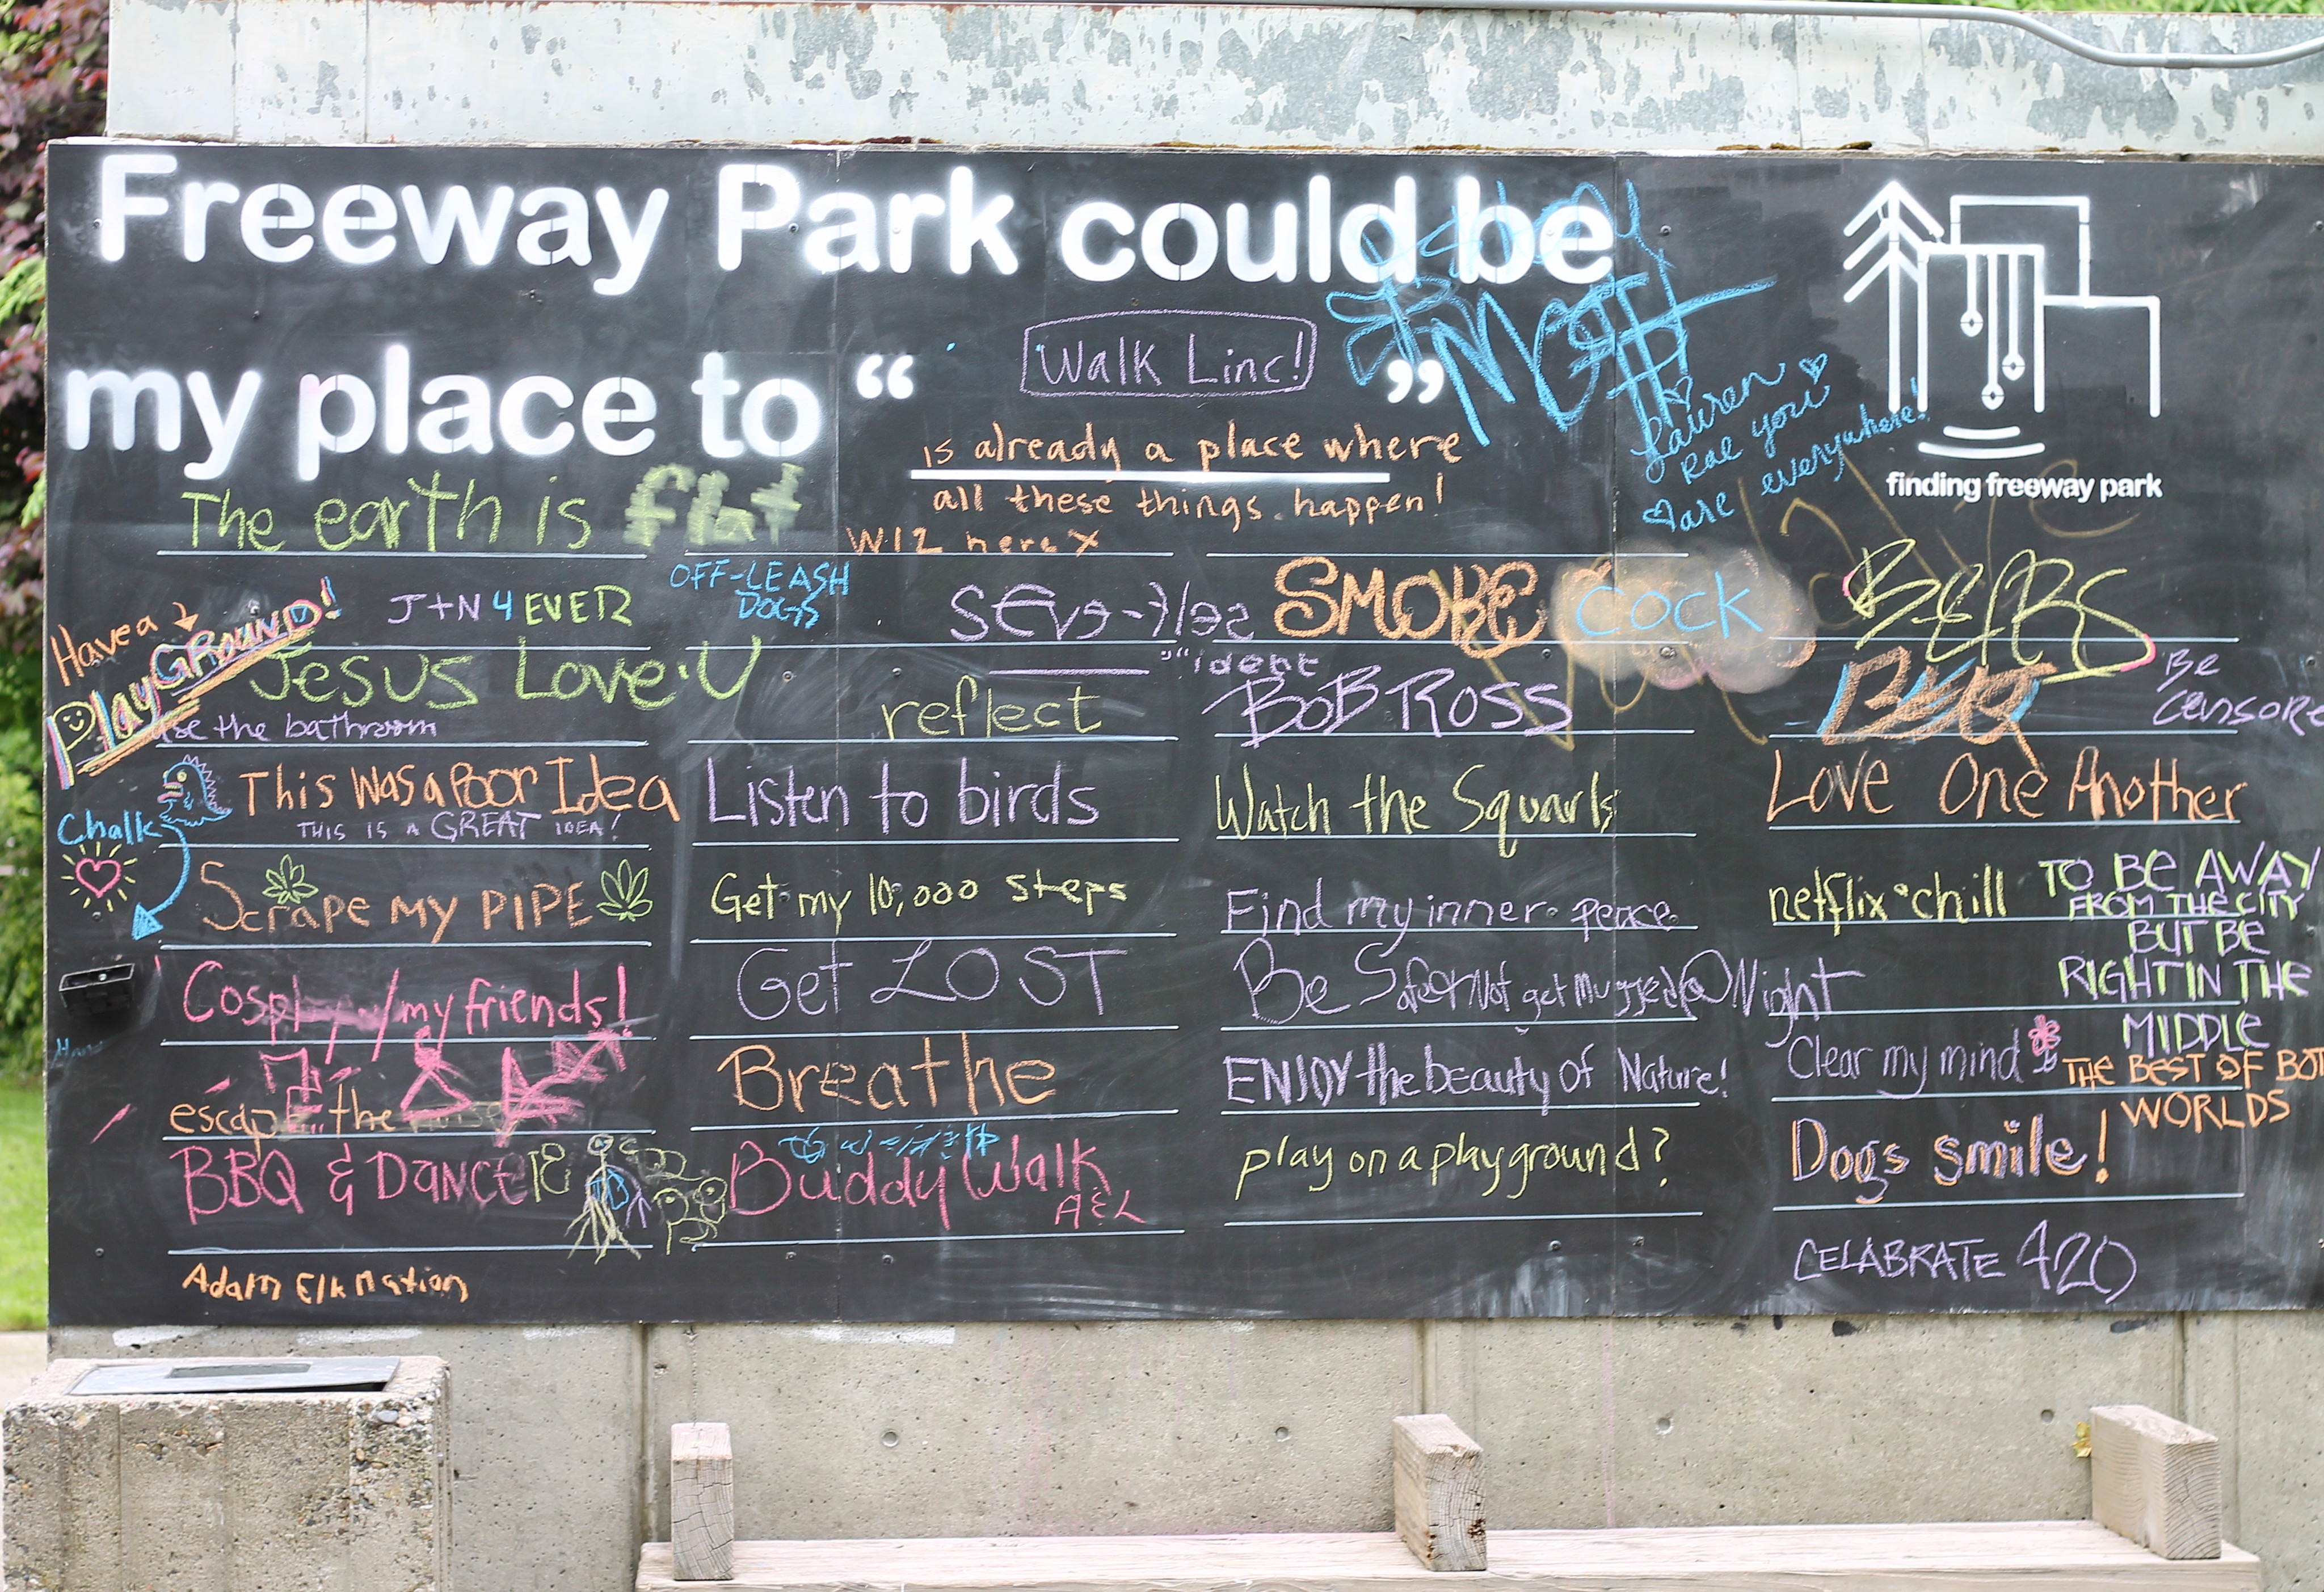 Freeway Park could be
my place to “ Walk Linc! ”
is already a place where
all these things happen!
Lauren
Rae you
are everywhere!
finding freeway park
The earth is flat
W12 here x
OFF-LEASH
DOGS
Have a
PlayGROUND!
J+N 4 EVER
SMOKE COCK
BEARS
"ident
Jesus Love U
the bathroom
reflect
BOB ROSS
BE
Censor
This Was a Poor Idea
THIS IS A GREAT IDEA!
Listen to birds
Watch the Squarls
Love One Another
Chalk
Scrape my PIPE
Get my 10,000 steps
Find my inner peace
netflix chill
TO BE AWAY
FROM THE CITY
BUT BE
RIGHT IN THE
MIDDLE
THE BEST OF BOT
WORLDS
Cosplay w/my friends!
Get LOST
Be Safe or Not get Mugged @ Night
escape the
Breathe
ENJOY the beauty of Nature!
Clear my mind
BBQ & DANCE
Buddy Walk
A&L
play on a playground?
Dogs smile!
Adam Elk Nation
CELABRATE 420